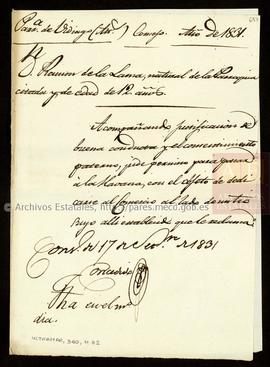 Parr.ª de Vidiago Consejo. Año de 1831.
D. Ramon de la Lama, natural de la Parroquia
citada y de edad de 12 años.
Acompañando justificacion de
buena conducta y el consentimiento
paterno, pide permiso para pasar
á la Havana, con el objeto de dedi
carse al comercio al lado de un tio
suyo alli establecido que le reclama
17 de 1831
Concedido
fha en el mo
dia.
© Archivos Estatales, http://pares.mecd.es
ULTRAMAR, 360, N.82